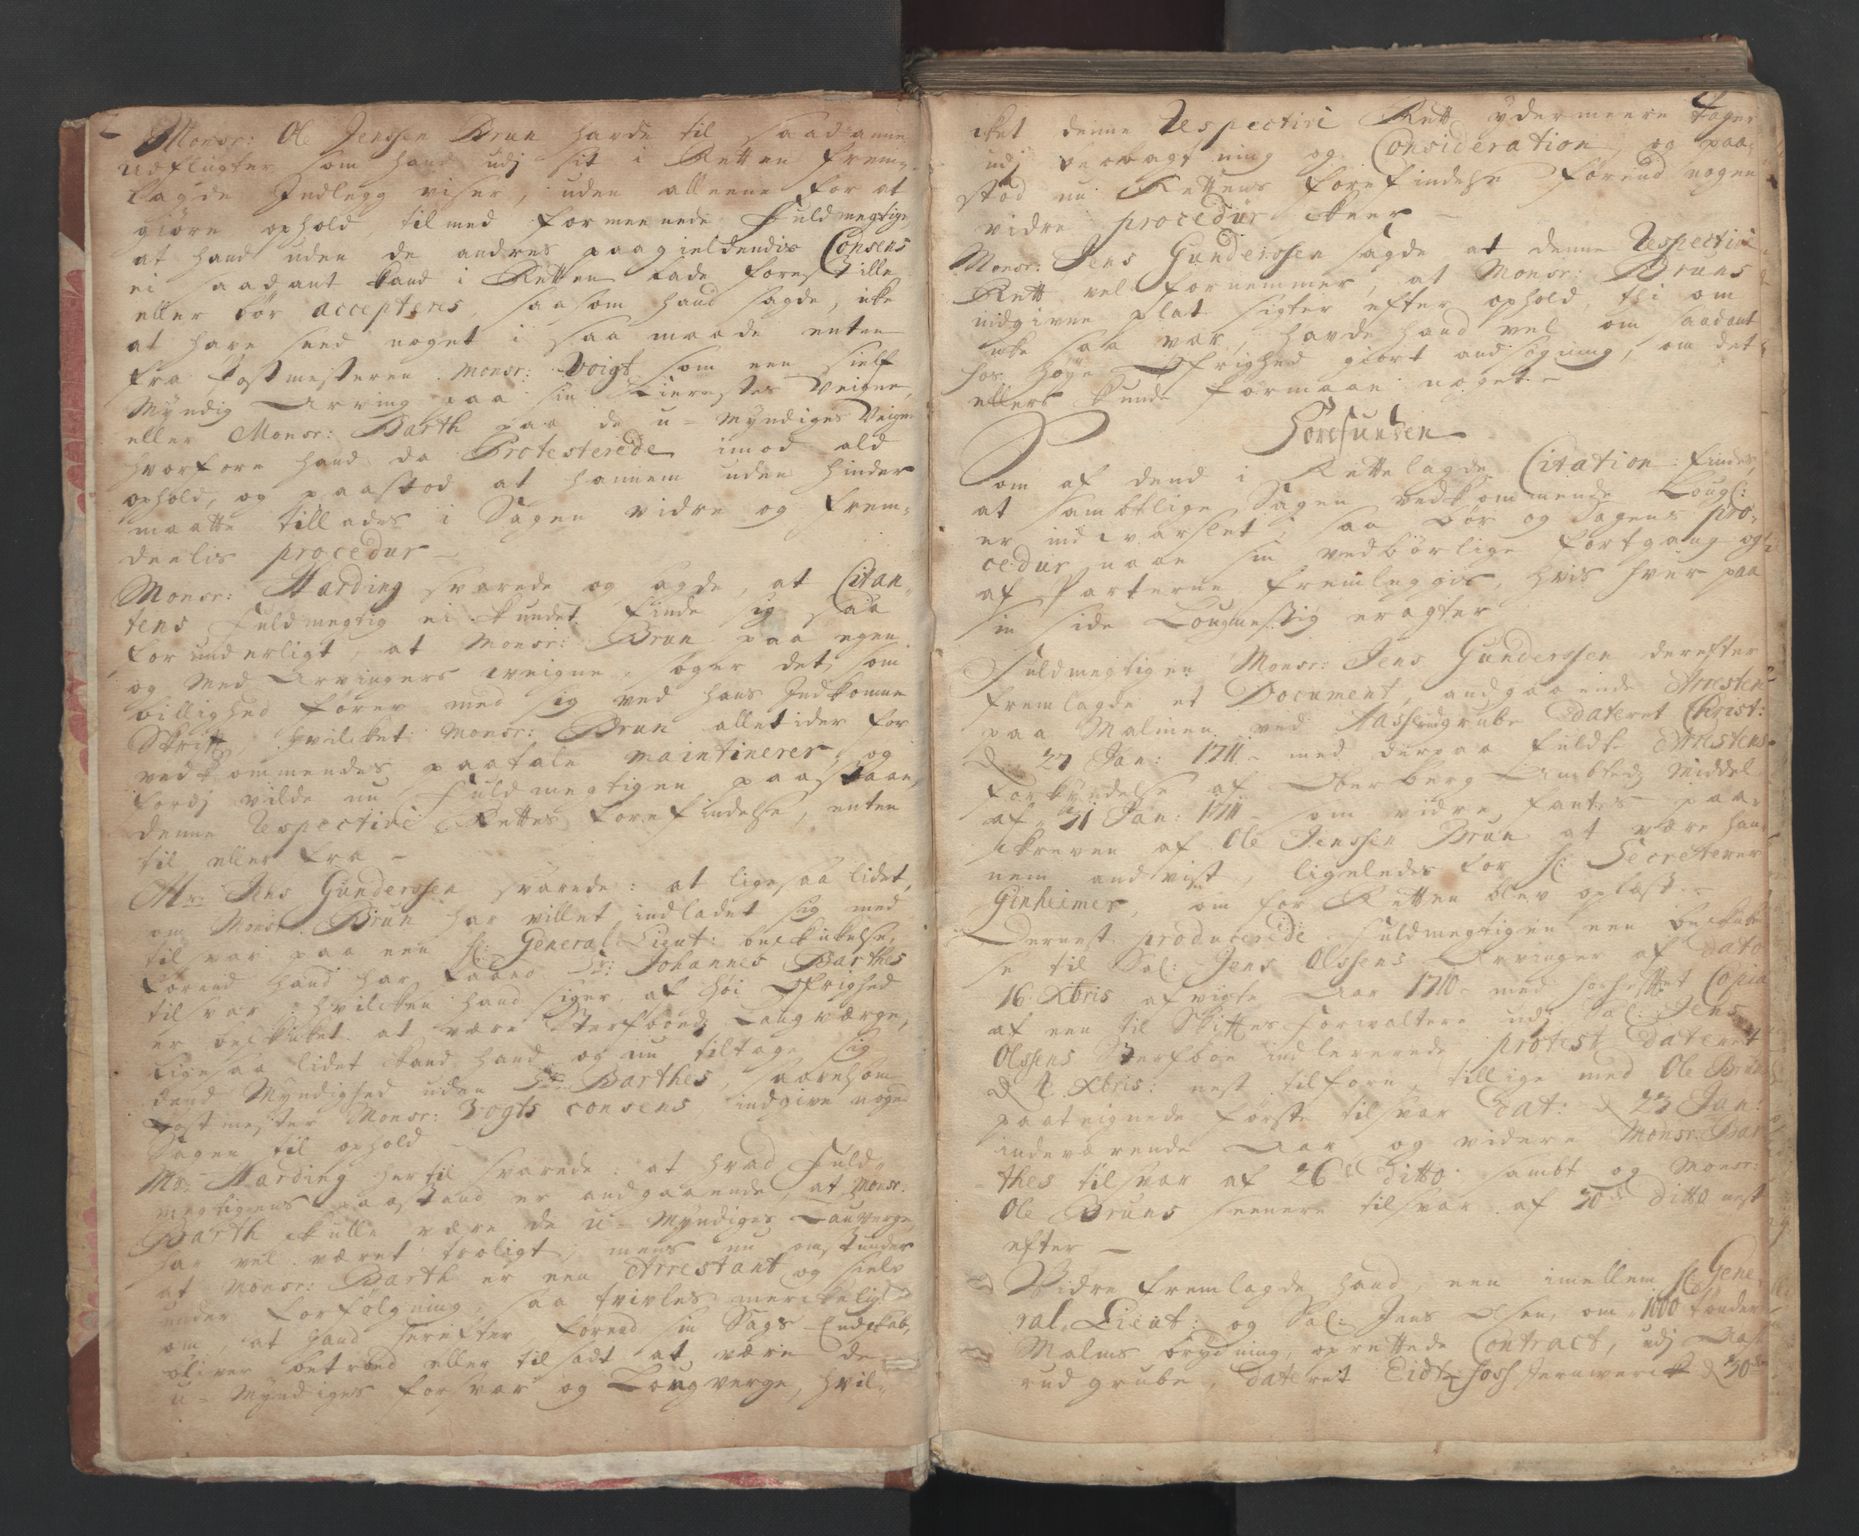 Monsr: Ole Jenssen Brun hafde til saadanne
udflugter som hand udj sit i Retten frem-
lagde Indlegg viser, uden alleene for at
giøre ophold, tilmed formeenede Fuldmegtigen,
at hand uden de andres paagieldendis Consens
ei saadant kand i Retten lade forestille,
eller bør accepteres, saasom hand sagde, icke
at have seed noget i saa maade enten
fra Postmesteren Monsr: Voigt som een sielf
Myndig Arving paa sin Kierestes Veigne,
eller Monsr: Barth paa de u-Myndiges Veigne
hvorfore hand da Protesterede imod ald
ophold, og paastod at hannem uden hinder
maatte tillades i Sagen vidre og frem-
deelis procedur -
Monsr: Harding svarede og sagde, at Citan-
tens Fuldmegtig ei kunde finde sig saa
forunderligt, at Monsr: Brun paa egen
og Med Arvingers veigne, søger det, som
billighed fører med sig ved hans Indkomne
Skrift, hvilcket Monsr: Brun alletider for
vedkommendes paatale maintinerer, og
fordj vilde nu Fuldmegtigen paastaae,
denne Respective Rettes forefindelse, enten
til eller fra -
Mr: Jens Gunderssen svarede: at ligesaa lidet,
om Monsr: Brun har villet indladet sig med
tilsvar paa een Hr: General Lieut: beskikelse,
førend hand har faaed Sr: Johannes Barthes
tilsvar, hvilcken hand siger, af høi Øfrighed
er beskiket at være Sterfboeds Laugværge,
Ligesaa lidet kand hand og nu tiltage sig
dend Myndighed uden Sr: Barthes, saavelsom
Postmester Monsr: Vogts consens, indgive noged
Sagen til ophold -
Mr: Harding hertil svarede: at hvad Fuld-
megtigens paastand er andgaaende, at Monsr.
Barth skulle være de u-Myndiges Lauverge,
har vel været troligt, mens nu omstunder
at Monsr: Barth er een Arrestant og sielv
under forfølgning, saa tvivles merckelig
om, at hand herefter førend sin Sags Endskab,
bliver betroed eller tilsadt at være de
u-Myndiges forsvar og Lougverge, hvil-
cket denne Respective Rett ydermeere tager
udj Beobagtning og Consideration, og paa-
stod nu Rettens forefindelse førend nogen
vidre procedur skeer -
Monsr: Jens Gunderssen sagde at denne Respective
Rett vel fornemmer, at Monsr: Bruns
indgivne plat sigter efter ophold, thi om
icke saa var, hafde hand vel om saadant
hos høye Øfrighed giort andsøgning, om det
ellers kunde formaae noget. -
Forefunden
Som af dend i Rettelagde Citation findes,
at samtlige Sagen vedkommende Lougl:
er indvarslet, saa bør og Sagens pro-
cedur naae sin vedbørlige fortgang og
af Parterne fremlegges, hvis hver paa
sin side Lougmessig eragter
Fuldmegtigen Monsr: Jens Gunderssen derefter
fremlagde et Document, andgaaende Arresten
paa Malmen ved Aasserudgrube dateret Christ:
d: 27 Jan: 1711 - med derpaa fuldte Arrestens
forkyndelse af Oberberg Ambtets Middel
af 31 Jan: 1711 - som vidre fantes paa-
skreven af Ole Jenssen Brun at være han-
nem andvist, ligeledes for Hr: Secreterer
Ginheimer, som for Retten blev oplæst. -
Dernest producerede Fuldmegtigen een beskikel-
se til Sal: Jens Olssens Arvinger af dato
16 Xbris afvigte Aar 1710 - med hosheftet Copia
af een til Skiftes forvaltere udj Sal: Jens
Olssens Sterfboe indleverede protest dateret
d 1 Xbris: nest tilforn, tillige med Ole Bruns
paateignede første tilsvar dat: d 23 Jan:
indeværende Aar og videre Monsr: Bar
thes tilsvar af 26de ditto sambt og Monsr:
Ole Bruns seenere tilsvar af 30te ditto nest
efter -
Vidre fremlagde hand een imellem Hr: Gene-
ral Lieut: og Sal: Jens Olsen, om 1000 tønder
Malms brydning, oprettede Contract, udj Aase-
rudgrube, dateret Eidtzfoss Jernwerck d 30te